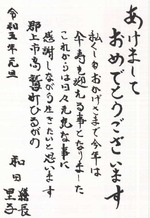 あけまして
おめでとうございます
私くしもおかげさまで今年は
傘寿を迎える事となりました
これからは日々元気な事に
感謝しながら生きたいと思います
郡上市高鷲町ひるがの
和田 義長
里子
令和五年元旦